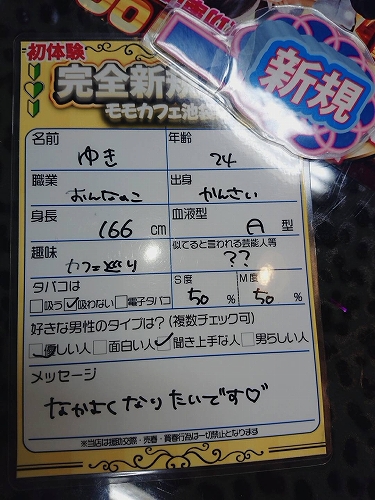 初体験
新規
完全新規
モモカフェ池
名前
ゆき
年齢
24
職業
おんなのこ
出身
かんさい
身長
166 cm
血液型
A 型
趣味
カフェ巡り
似てると言われる芸能人等
??
タバコは
□吸う ☑吸わない □電子タバコ
S度
50 %
M度
50 %
好きな男性のタイプは?(複数チェック可)
☑優しい人 □面白い人 ☑聞き上手な人 □男らしい人
メッセージ
なかよくなりたいです♡
※当店は援助交際・売春・買春行為は一切禁止となります